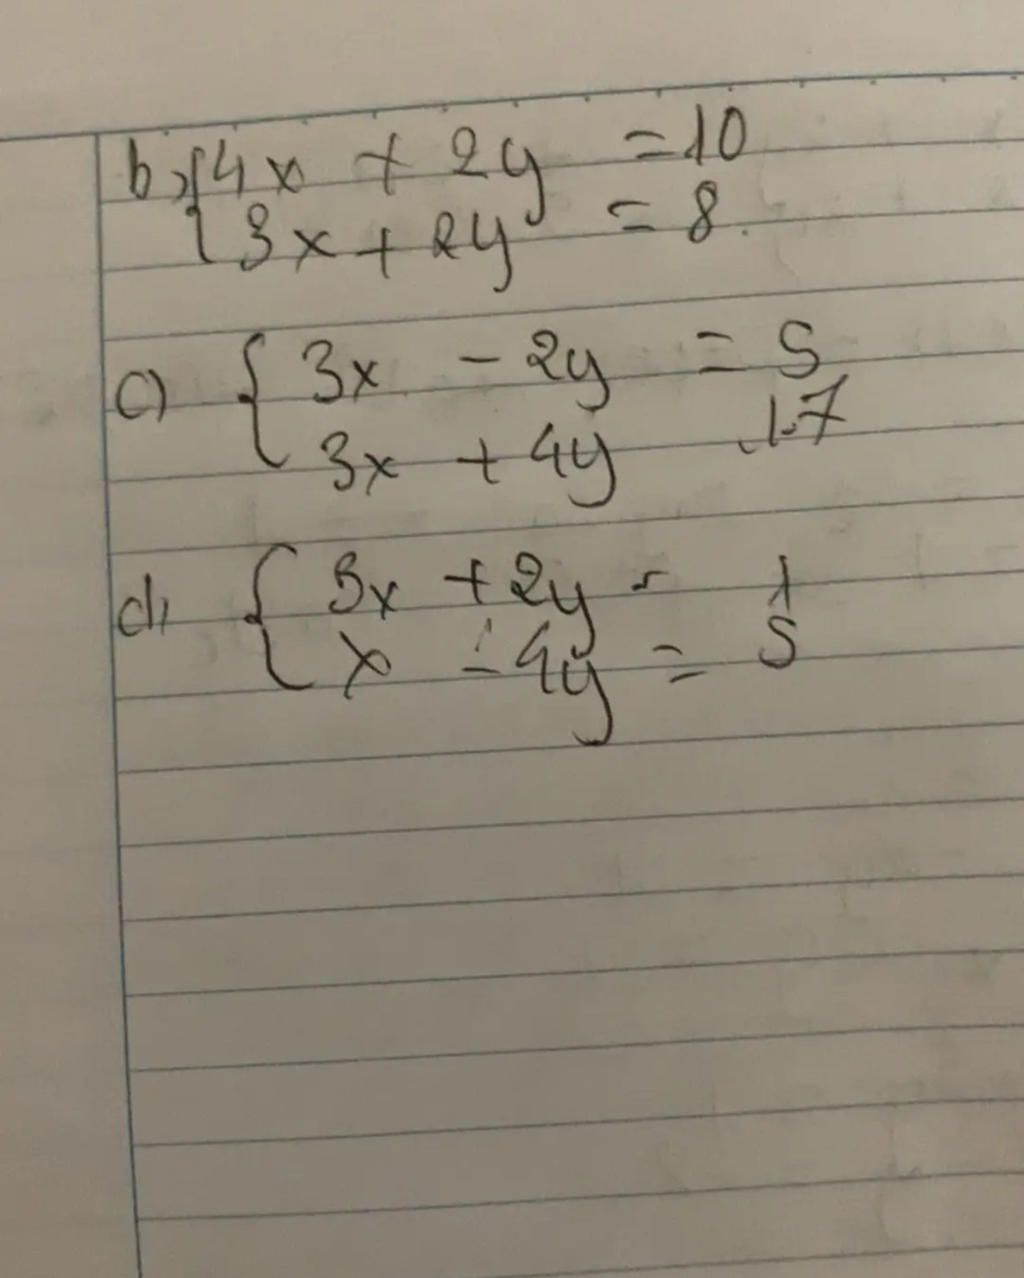 b, { 4x + 2y = 10
3x + 2y = 8.
c) { 3x - 2y = 5
3x + 4y 17
d) { 3x + 2y = 1
x - 4y = 5